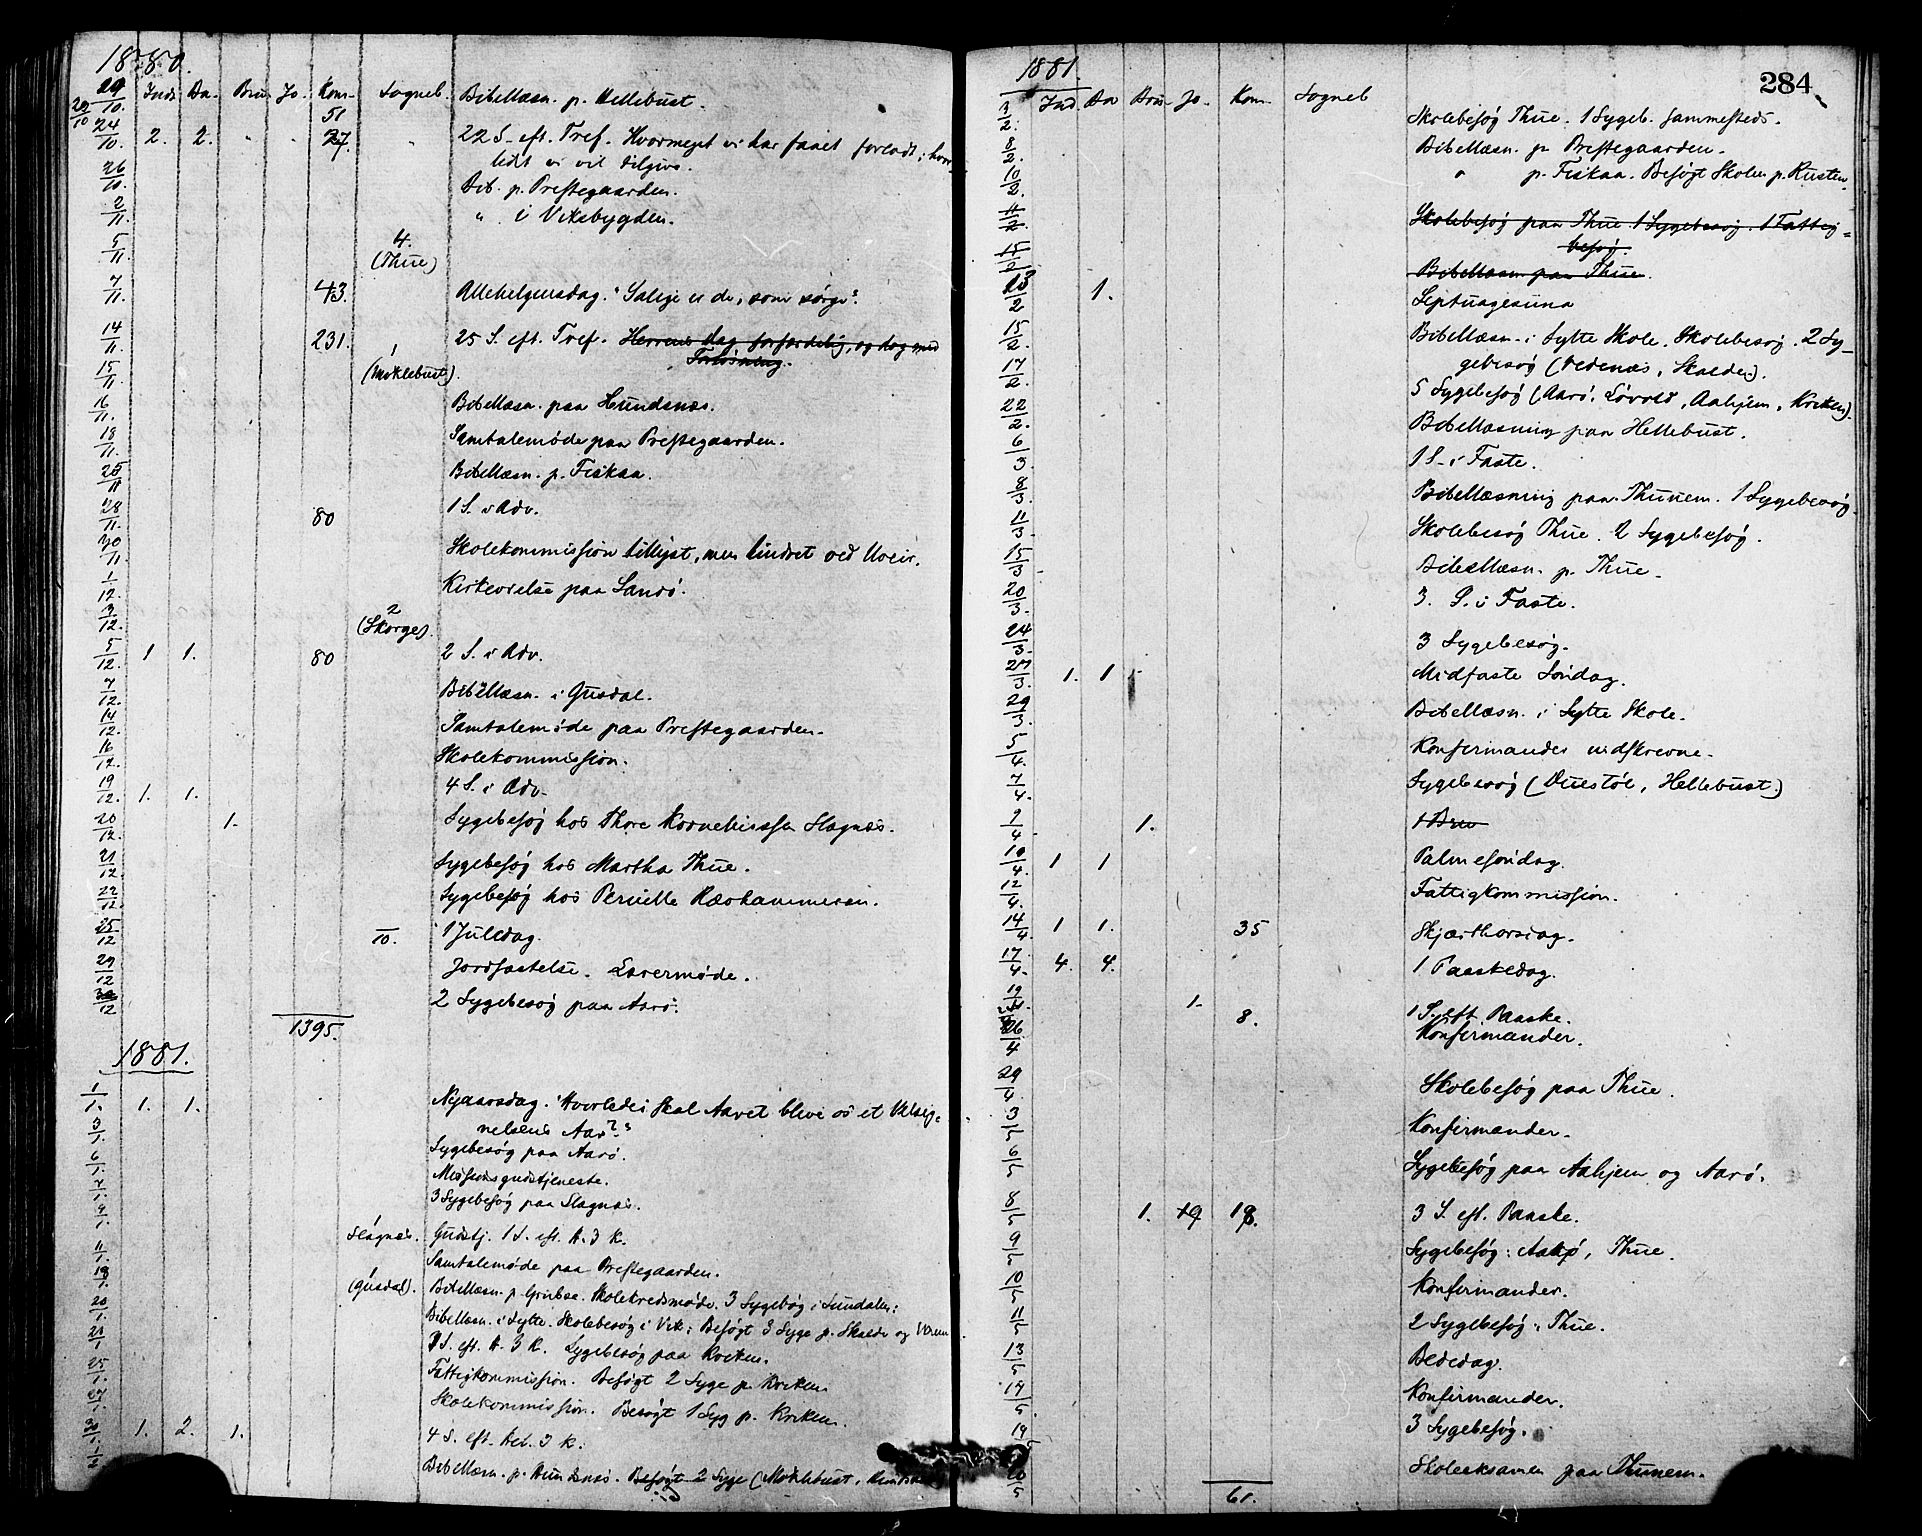 1880.
29/10. Inds Da. Brur Jo. Kom- Sognebu. Bibellæsn. p. Hellebust.
29/10 51
24/10. 2. 2. " " 27. " 22 S. eft. Tref. Hvormeget vi har faaet forladt; hvor
lidt vi vil tilgive.
26/10. Bib. p. Prestegaarden.
2/11. " i Viksbygden.
5/11. 4. (Thue)
7/11. 43. Allehelgensdag. "Salige er de, som sørge".
14/11. 231. 25 S. eft. Tref. Herrens dag forfærdelig, og dog med
Forløsning.
15/11. 1 (Myklebust).
16/11. Bibellæsn. paa Hundsnæs.
18/11. Samtalemøde paa Prestegaarden.
25/11 Bibellæsn. p. Fiskaa.
28/11. 80 1 S. i Adv.
30/11. Skolekommission tillyst, men hindret ved Uveir.
1/12. Kirkevielse paa Sandø.
3/12. 2 (Skorge).
5/12. 1 1. 80 2 S. i Adv.
7/12. Bibellæsn. i Gusdal.
14/12. Samtalemøde paa Prestegaarden.
16/12. Skolekommission.
19/12. 1. 1. 4 S. i Adv.
20/12. 1. Sygebesøg hos Thore Korneliussen Slagnæs.
21/12. Sygebesøg hos Martha Thue.
22/12. Sygebesøg hos Pernille Ræshammeren.
25/12 10. 1 Juledag.
29/12 Jordfæstelse. Lærermøde.
30/12 2 Sygebesøg paa Aarø.
1395.
1881.
1/1. 1. 1. Nyaarsdag. "Hvorledes skal Aaret blive os et Velsig-
nelsens Aar?"
3/1. Sygebesøg paa Aarø.
6/1. Missionsgudstjeneste.
7/1. 3 Sygebesøg paa Slagnæs.
9/1. Slagnæs. Gudstj. 1 S. eft. H. 3 K.
11/1. Samtalemøde paa Prestegaarden.
18/1. (Gusdal). Bibellæsn. p. Grinbæ. Skolekredsmøde. 3 Sygebøg i Sundalen.
20/1. Bibellæsn. i Sylte. Skolebesøg i Vik. Besøgt 3 Syge p. Skaede og
21/1 S. eft. H. 3 K. Sygebesøg paa Kviken.
25/1. Fattigkommission. Besøgt 2 Syge p. Kviken
27/1. Skolekommission. Besøgt 1 Syg p. Kviken.
30/1. 1. 2. 1. 4 S. eft. Hel. 3 K.
Bibellæsn. p. Hundsnæs. Besøgt 2 Syge (Myklebust,
1881. 284
Ind Da Brur- Jo- Kom- Sogneb
3/2. Skolebesøg Thue. 1 Sygeb. sammesteds.
8/2. Bibellæsn. p. Prestegaarden.
10/2. " p. Fiskaa. Besøgt Skolen p. Rusten.
11/2. Skolebesøg paa Thue. 1 Sygebesøg. 1 Fattig-
besøg.
15/2 Bibellæsn paa Thue.
13/2 1. Septuagesima
15/2. Bibellæsn. i Sylte Skole. Skolebesøg. 2 Sy-
17/2. gebesøg (Vedenæs, Skaede).
5 Sygebesøg (Aarø, Løvold, Aahjem, Kviken).
22/2. Bibellæsning paa Hellebust.
6/3 1 S. i Faste.
8/3. Bibellæsning paa Thunem. 1 Sygebesøg.
11/3. Skolebesøg Thue. 2 Sygebesøg.
15/3 Bibellæsn. p. Thue.
20/3. 3. S. i Faste.
24/3. 3 Sygebesøg.
27/3. 1. 1 Midfaste Søndag.
29/3. Bibellæsn. i Sylte Skole.
5/4. Konfirmander indskrevne.
7/4. Sygebesøg (Duestøl, Hellebust)
9/4 1. 1 Brur
10/4. 1 1 Palmesøndag.
12/4. Fattigkommission.
14/4. 1 1. 35 Skjærthorsdag.
17/4. 4. 4. 1 Paaskedag.
19/4. 1.
8. 1 S. eft Paaske.
26/4 Konfirmander.
29/4. Skolebesøg paa Thue.
3/5 Konfirmander.
6/5 Sygebesøg paa Aahjem og Aarø.
8/5 1. 19 18. 3 S. eft. Paaske.
9/5 Sygebesøg: Thue.
10/5 Konfirmander.
11/5 2 Sygebesøg: Thue.
13/5 Bededag.
14/5 Konfirmander.
19/5 3 Sygebesøg.
20/5 Skoleeksamen paa Thunem.
61.